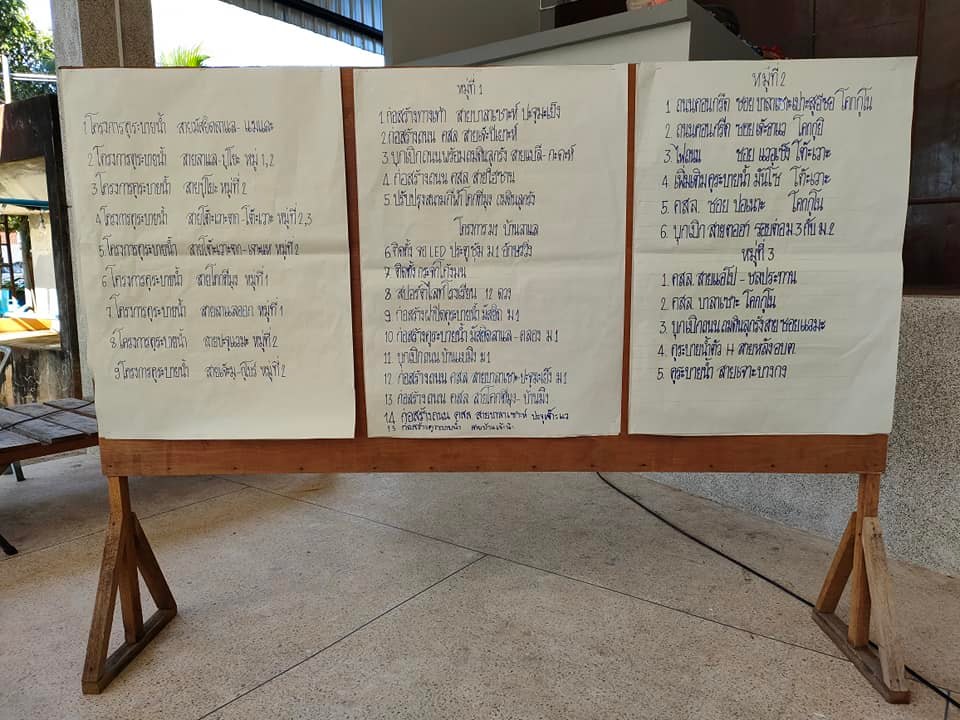 1.โครงการคูระบายน้ำ สายมัสยิดลาแล - แมแดะ
2.โครงการคูระบายน้ำ สายลาแล - ปูโยะ หมู่ 1,2
3 โครงการคูระบายน้ำ สายปูโยะ หมู่ที่ 2
4.โครงการคูระบายน้ำ สายโต๊ะเวาะตก - โต๊ะเวาะ หมู่ที่ 2,3
5.โครงการคูระบายน้ำ สายโต๊ะเวาะตก - หมู่ที่ 2
6.โครงการคูระบายน้ำ สายโคกทีมุง หมู่ที่ 1
7.โครงการคูระบายน้ำ สายลาแลออก หมู่ที่ 1
8.โครงการคูระบายน้ำ สายปะจูแวมะ หมู่ที่ 2
9.โครงการคูระบายน้ำ หมู่ที่ 2
หมู่ที่ 1
1.ก่อสร้างทางเท้า สายบาลาเซาะห์
2.ก่อสร้างถนน คสล
3 บุกเบิกถนนพร้อมถมดินลูกรัง
4 ก่อสร้างถนน คสล
5 ปรับปรุงสนามกีฬาโคกทีมุง ถมดินลูกรัง
โครงการ ม1 บ้านลาแล
6 ติดตั้ง จอ LED ประตูชุม ม1
7 ติดตั้ง กระจกโค้งมน
8 สปอร์ตไลท์โรงเรียน 12 ดวง
9 ก่อสร้างฝาปิดคูระบายน้ำมัสยิด ม1
10 ก่อสร้างคูระบายน้ำ มัสยิดลาแล - คลอง ม1
11 บุกเบิกถนน ม1
12 ก่อสร้างถนน คสล สายบาลาเซาะ ม1
13 ก่อสร้างถนน คสล สายโคกทีมุง - บ้านมิง
14 ก่อสร้างถนน คสล สายบาลาเซาะห์
ก่อสร้างคูระบายน้ำ
หมู่ที่ 2
1 ถนนคอนกรีต ซอย โคกกูโน
2 ถนนคอนกรีต ซอย
3.ไฟถนน ซอย โต๊ะเวาะ
4 เพิ่มเติมคูระบายน้ำ โต๊ะเวาะ
5. คสล. ซอย ปอเนาะ โคกกูโน
6. บุกเบิก สายตออา รอบต่อ ม.3 กับ ม.2
หมู่ที่ 3
1. คสล. สายแอโป - ชลประทาน
2. คสล. บาลาเซาะ โคกกูโน
3. บุกเบิกถนน ถมดินลูกรังสาย ซอยแวมะ
4. คูระบายน้ำตัว H สายหลังอบต.
5. คูระบายน้ำ สายเจาะบากง